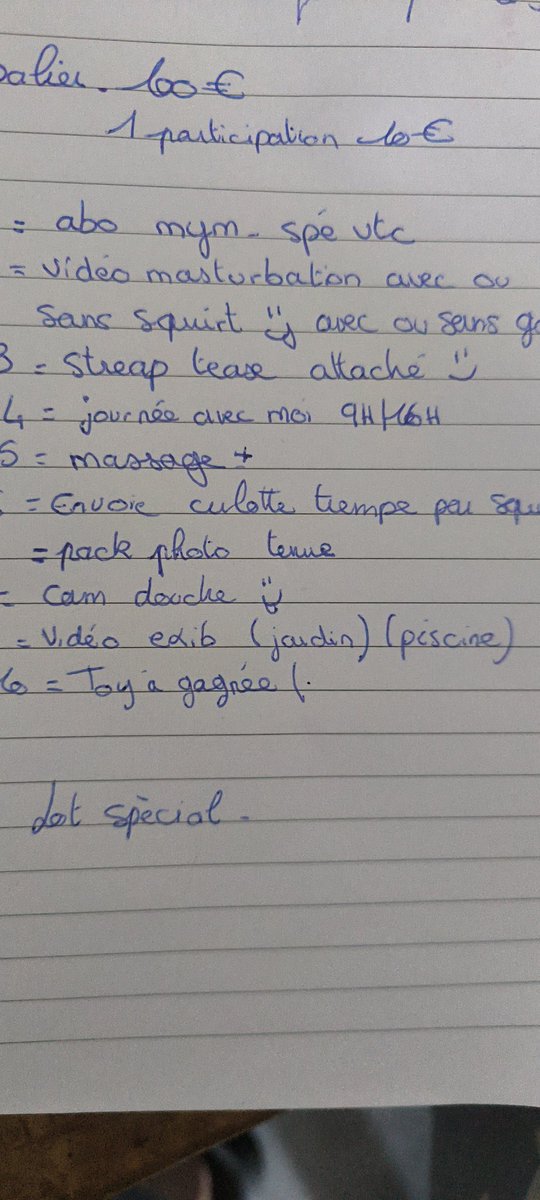 palier. 100€
1 participation 10€
= abo mym - spé vtc
= vidéo masturbation avec ou
sans squirt avec ou sans
3 = streap tease attaché
4 = journée avec moi 9H/16H
5 = massage +
= Envoie culotte trempe peu squ
= pack photo tenue
= cam douche
= vidéo exib (jardin) (piscine)
10 = Toy à gagnée (.
lot spècial.